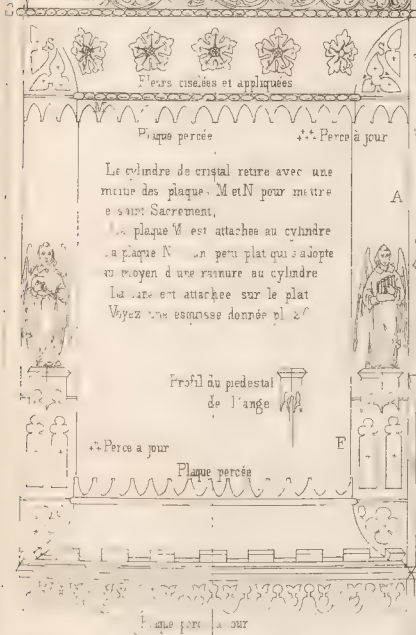 Fleurs ciselées et appliquées
M
Plaque percée
Perce à jour
Le cylindre de cristal retire avec une
moitie des plaques M et N pour mettre
e saint Sacrement,
plaque M est attachee au cylindre
la plaque N un petit plat qui s'adopte
au moyen d'une rainure au cylindre
La est attachee sur le plat
Voyez une esquisse donnée pl.
A
Profil du piedestal
de l'ange
Perce a jour
E
Plaque percée
Plaque perc a jour